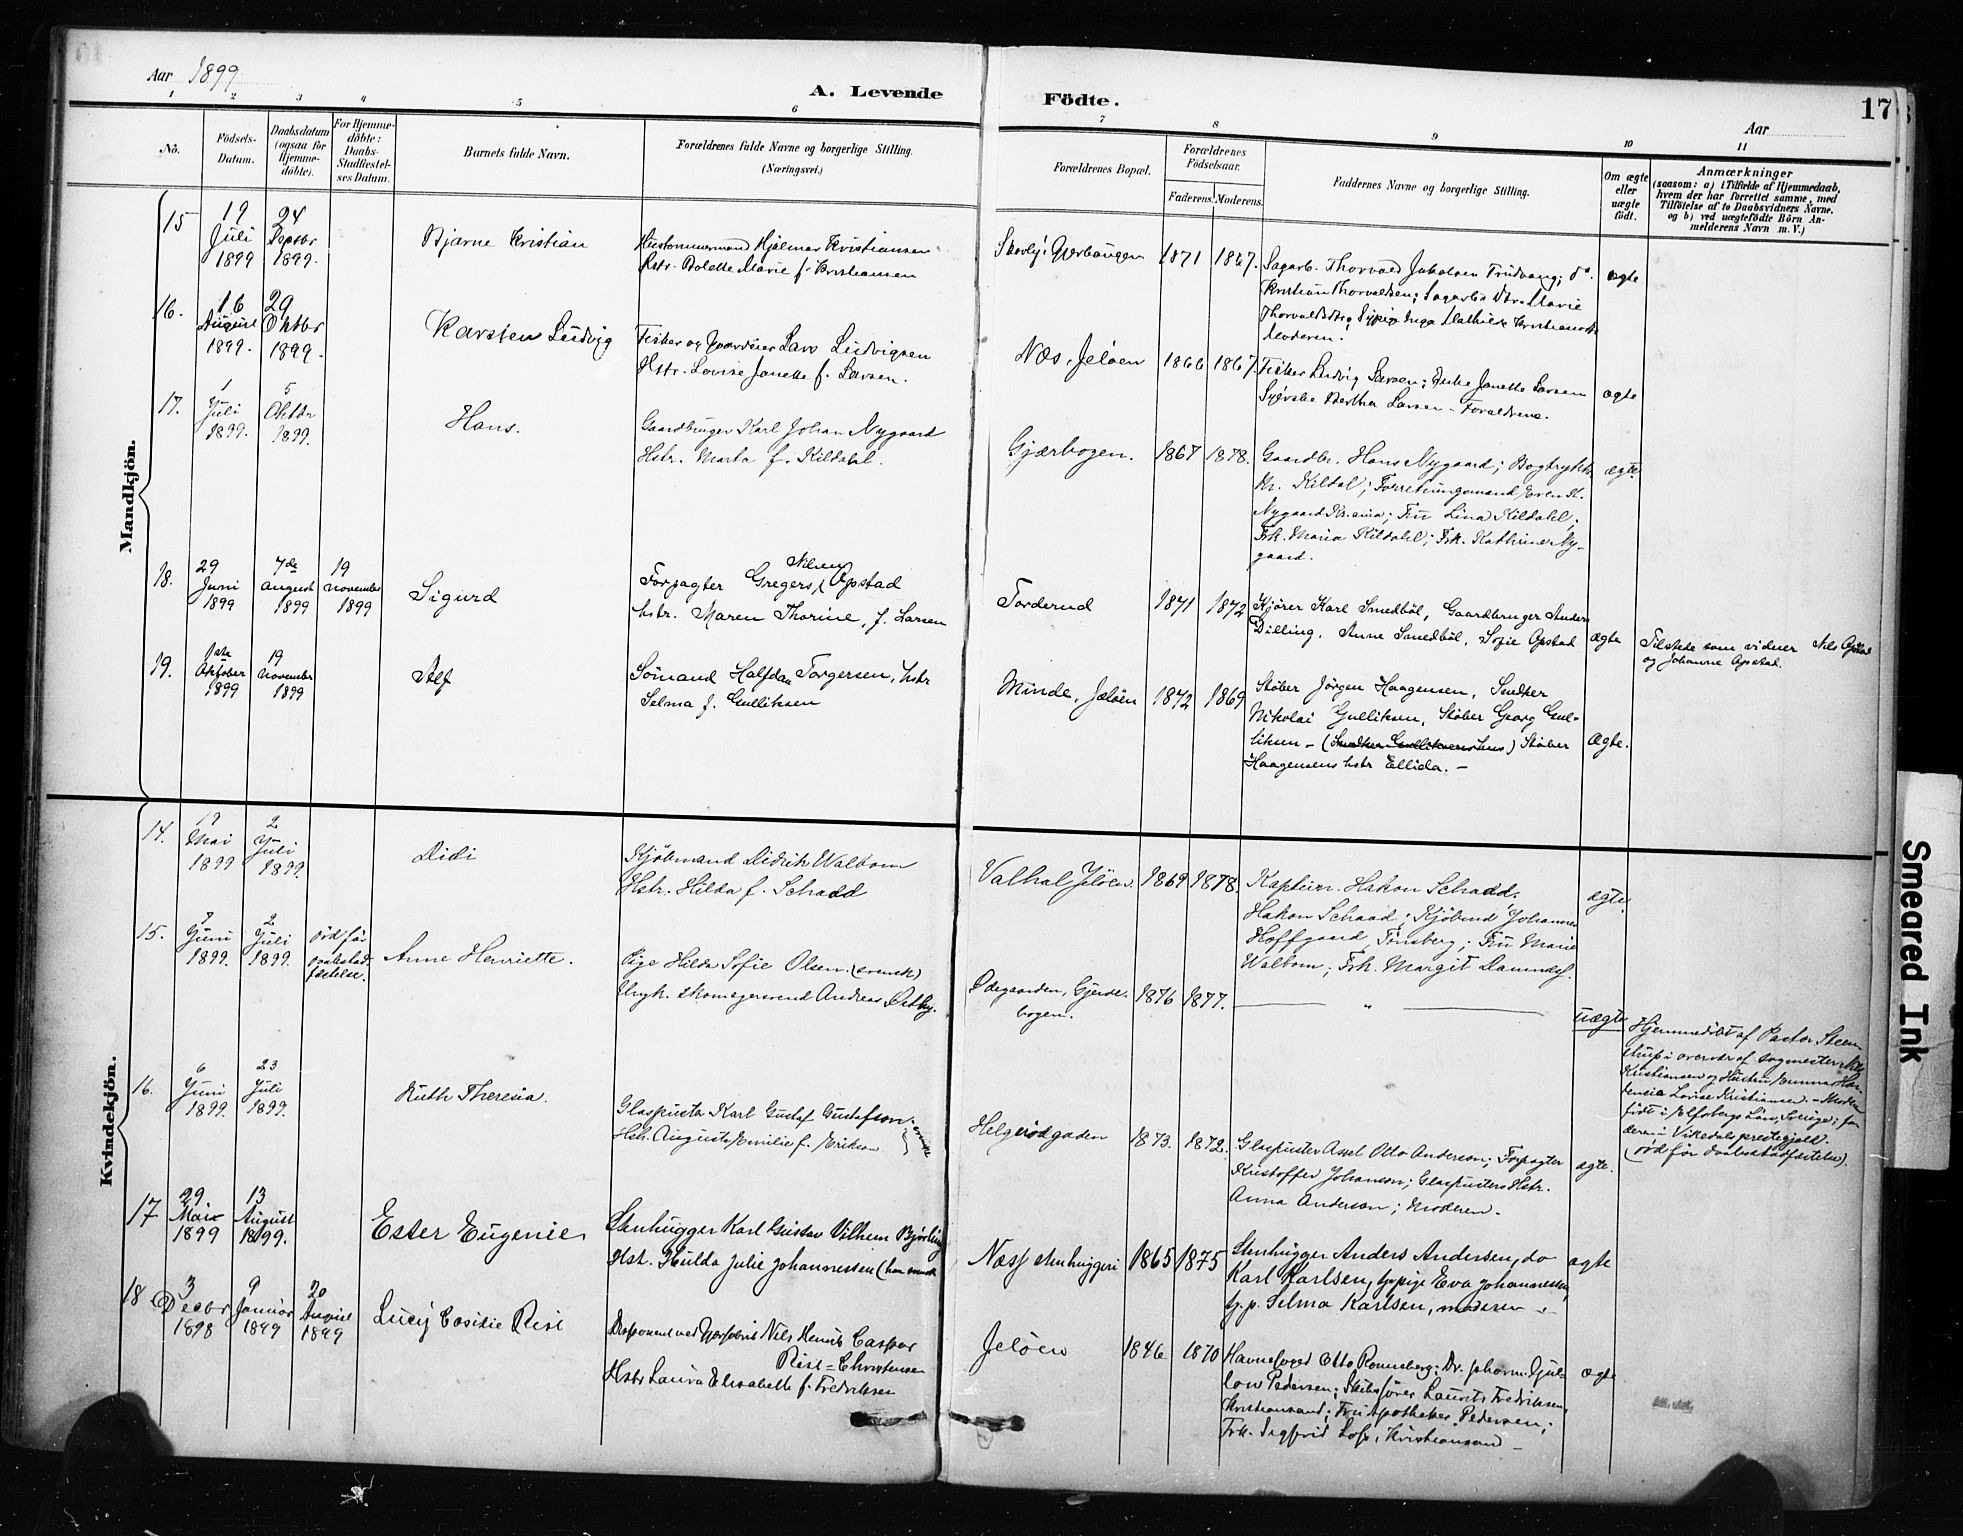 Aar 1899
A. Levende
Födte.
17
Aar
1 2 3 4 5 6 7 8 9 10 11
No.
Födsels-Datum.
Daabsdatum (ogsaa for Hjemme-döbte).
For Hjemme-döbte: Daabs-Stadfæstel-ses Datum.
Barnets fulde Navn.
Forældrenes fulde Navne og borgerlige Stilling.
(Næringsvei.)
Forældrenes Bopæl.
Forældrenes Födselsaar.
Faderens. Moderens.
Faddernes Navne og borgerlige Stilling.
Om ægte eller uægte födt.
Anmærkninger
(saasom: a) i Tilfælde af Hjemmedaab,
hvem der har forrettet samme, med
Tilföielse af to Daabsvidners Navne.
og b) ved uægtefödte Börn An-
melderens Navn m. V.)
Mandkjön.
15
19 Juli 1899
24 Septbr 1899.
Bjarne Kristian
Hustømmermand Hjalmar Kristiansen
Hstr. Bolette Marie f. Kristiansen
1871 1867.
Sagarb. Thorvald Jakobsen Trudvang; do.
Kristian Thorvaldsen; Sagarb's Hstr. Marie
Moderen.
ægte
16.
16 August 1899.
29 Oktbr 1899.
Karsten Ludvig
Fisker og Gaardeier Lars Ludvigsen
Hstr. Lovise Janette f. Larsen.
Næs, Jeløen
1866 1867.
Fisker Ludvig Larsen; Enke Janette Larsen
Syerske Bertha Larsen - Forældrene.
ægte
17.
1 Juli 1899.
5 Oktbr 1899.
Hans.
Gaardbruger Karl Johan Nygaard
Hstr. Marta f. Kildahl.
Gjærbogen.
1867 1878.
Gaardbr. Hans Nygaard; Bogtrykker
Kr. Kildal; Forretningsmand Even H.
Nygaard Kr.ania; Fru Lina Kildahl;
Frk. Maria Kildahl; Frk. Kathrine Ny-
gaard.
ægte.
18.
29 Juni 1899
7de august 1899
19 november 1899
Sigurd
Nilsen
Forpagter Gregers Opstad
hstr. Maren Thorine, f. Larsen
Torderud
1871 1872
Kjører Karl Smedbøl, Gaardbruger Anders
Dilling, Anne Smedbøl, Sofie Opstad
ægte
Tilstede som vidner Nils Opstad
og Johanne Opstad.
19.
1ste Oktober 1899
19 november 1899
Alf
Sömand Halfdan Torgersen, hstr
Selma f. Gulliksen
Minde, Jeløen
1872 1869
Støber Jörgen Haagensen, Snedker
Nikolai Gulliksen, Støber Georg Gul-
liksen - (Snedker Gulliksens hus) Støber
Haagensens hstr Ellida. -
Ægte.
Kvindekjön.
14.
Mai 1899
2 Juli 1899.
Didi
Kjöbmand Didrik Walbom
Hstr. Hilda f. Schadd
Valhal Jeløen.
1869 1878.
Kapteinr. Hakon Schadd.
Hakon Schaad; Kjøbmd Johannes
Hoffgaard, Tønsberg; Fru Marie
Walbom; Frk. Margit
ægte.
15.
7 Juni 1899.
2 Juli 1899.
død før daabsstadfæstelse.
Anne Henriette.
Pige Hilda Sofie Olsen (svensk)
Ungk. skomagersvend Andreas Østby.
Ødegaarden, Gjerde-
bogen.
1876 1877.
"
uægte
Hjemmedøbt af Pastor Steen-
strup i overvær af sagmester Nils
Kristiansen og Hustru Gunnar
Lovise Kristiansen. - Moder
født i Elfsborgs Län, Sverige; fa-
deren i Vikedals prestegjeld.
(død før daabsstadfæstelse).
16.
6 Juni 1899.
23 Juli 1899.
Ruth Theresia.
Glaspuster Karl Gustaf Gustafson
Hstr. Augusta Emilie f. Erikson
svenske
Helgerødgaden
1873. 1872.
Glaspuster Axel Otto Anderson; Forpagter
Kristoffer Johanson; Glaspusters Hstr.
Anna Anderson; Moderen.
ægte.
17
29 Mai 1899
13 August 1899.
Ester Eugenie
Stenhugger Karl Gustav Vilhem Björling
Hst. Hulda Julie Johannessen (han svensk
Næss stenhuggeri
1865 1875
Stenhugger Anders Andersen, do
Karl Karlsen, typige Eva Johannessen,
ty.p. Selma Karlsen, moderen -
ægte
18
3 Decbr 1898
9 Januar 1899
20 August 1899
Lucy Cosidie Rise
Disponent ved Nils Henrik Caspar
Rise-Christensen
Hstr Laura Elisabette f. Fredriksen
Jeløen
1846 1870
Havnefoged Otto Ronneberg; Dr.
Pedersen; Skibsfører Laurits Fredriksen,
Kristiansand; Fru Apotheker Pedersen;
Frk. Sigfrid Kristiansand -
ægte
Smeared Ink